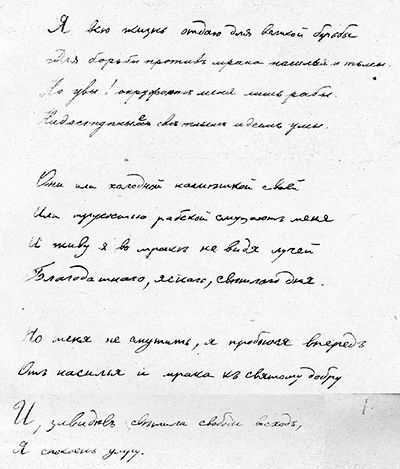 Я всю жизнь отдаю для великой борьбы
Для борьбы противъ мрака насилья и тьмы.
Но увы! окружаютъ меня лишь рабы.
Недоступные свѣтлымъ идеямъ умы.
Они или холодной насмѣшкой своей
Или трусостью рабской смущаютъ меня
И живу я во мракѣ не видя лучей
Благодатнаго, яснаго, свѣтлаго дня.
Но меня не смутить, я пробьюся впередъ
Отъ насилья и мрака къ святому добру
И, завидѣвъ свѣтила свободы восходъ,
Я спокоенъ умру.